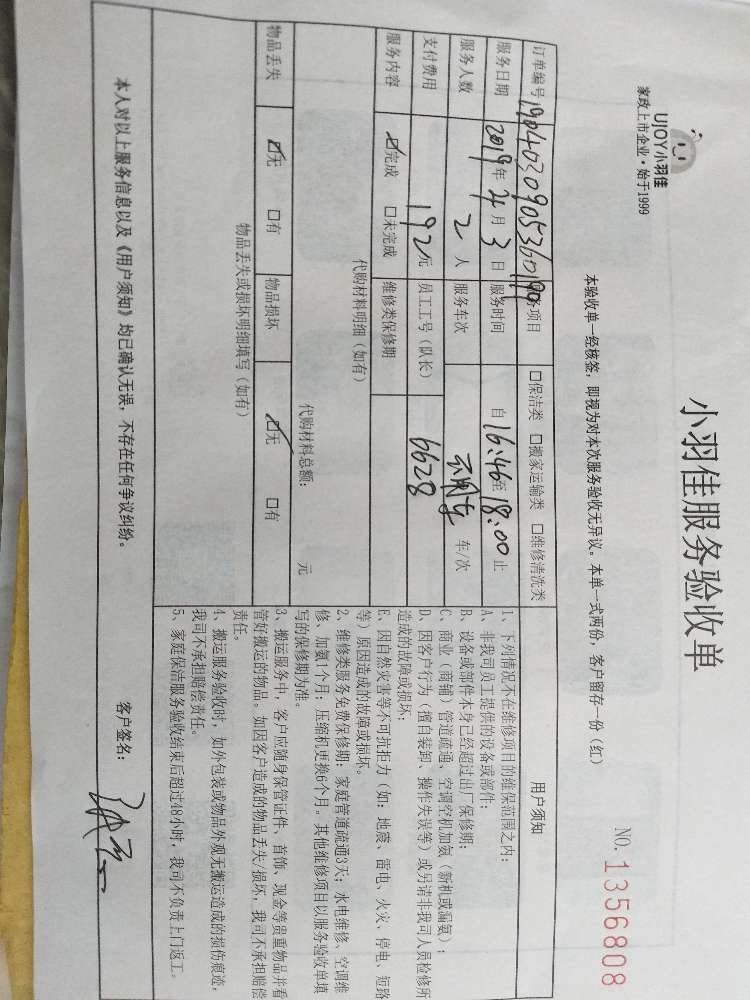 UJOY小羽佳
家政上市企业·始于1999
小羽佳服务验收单
NO. 1356808
本验收单一经核签，即视为对本次服务验收无异议。本单一式两份，客户留存一份（红）
订单编号 190403090536019 务项目 □保洁类 □搬家运输类 □维修清洗类
服务日期 2019年 4月 3日 服务时间 自16:46至18:00止
服务人数 2 人 服务车次 车/次
支付费用 192元 员工工号（队长） 6628
服务内容 ☑完成 □未完成 维修类保修期
代购材料明细（如有）
代购材料总额： 元
物品丢失 ☑无 □有 物品损坏 ☑无 □有
物品丢失或损坏明细填写（如有）
用户须知
1、下列情况不在维修项目的维保范围之内：
A、非我司员工提供的设备或部件；
B、设备或部件本身已经超过出厂保修期；
C、商业（商铺）管道疏通、空调空机加氨（新机或漏氨）；
D、因客户行为（擅自装卸、操作失误等）或另请非我司人员检修所
造成的故障或损坏；
E、因自然灾害等不可抗拒力（如：地震、雷电、火灾、停电、短路
等）原因造成的故障或损坏。
2、维修类服务免费保修期：家庭管道疏通3天；水电维修、空调维
修、加氨1个月；压缩机更换6个月。其他维修项目以服务验收单填
写的保修期为准。
3、搬运服务中，客户应随身保管证件、首饰、现金等贵重物品并看
管好搬运的物品。如因客户造成的物品丢失/损坏，我司不承担赔偿
责任。
4、搬运服务验收时，如外包装或物品外观无搬运造成的损伤痕迹，
我司不承担赔偿责任。
5、家庭保洁服务验收结束后超过48小时，我司不负责上门返工。
本人对以上服务信息以及《用户须知》均已确认无误，不存在任何争议纠纷。
客户签名：